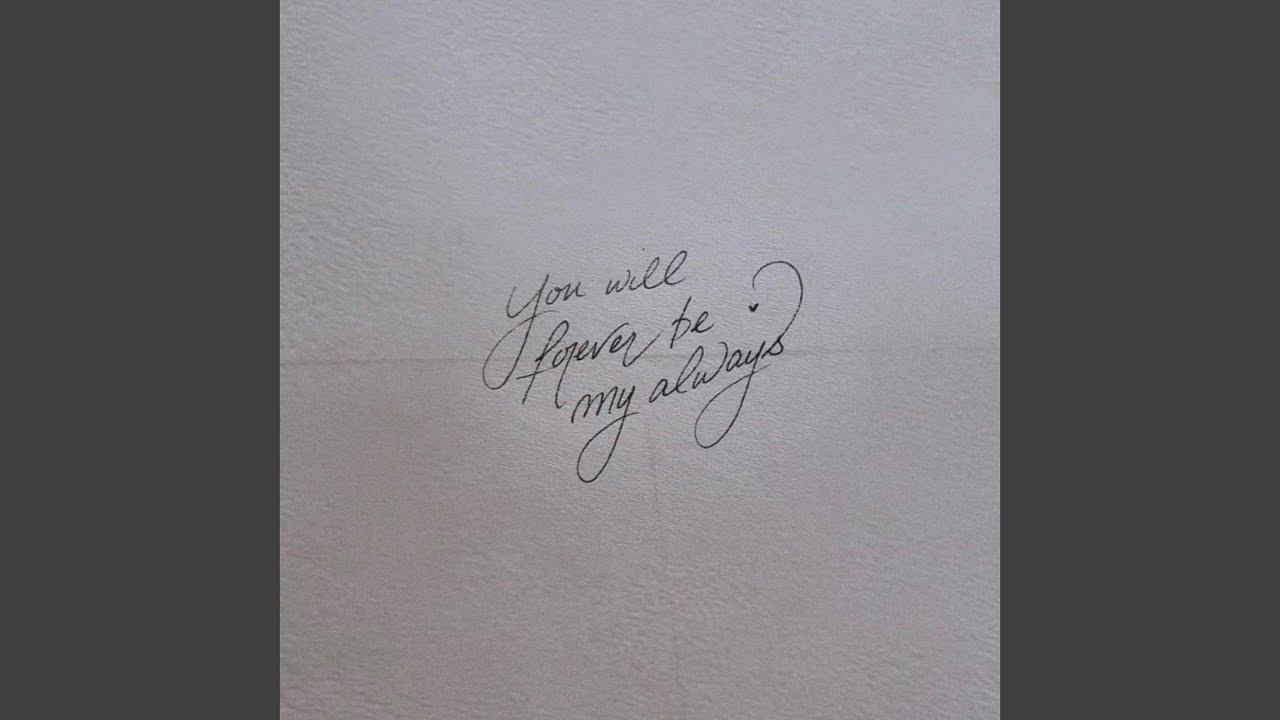 You will
forever be
my always